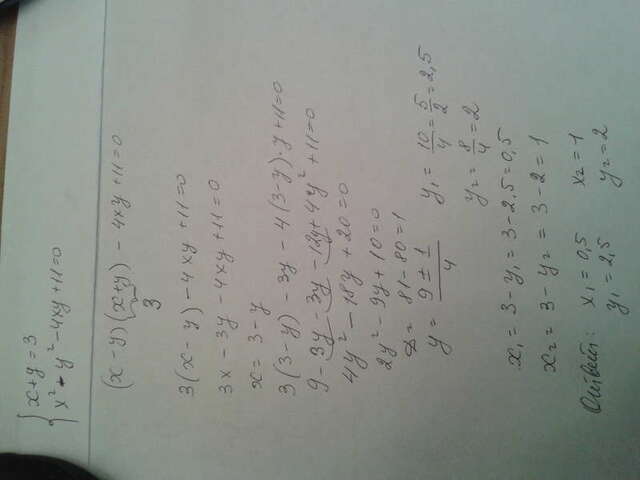 { x+y=3
x²-y²-4xy+11=0
(x-y)(x+y)-4xy+11=0
3
3(x-y)-4xy+11=0
3x-3y-4xy+11=0
x=3-y
3(3-y)-3y-4(3-y)·y+11=0
9-3y-3y-12y+4y²+11=0
4y²-18y+20=0
2y²-9y+10=0
D=81-80=1
y=9±1/4
y₁=10/4=5/2=2,5
y₂=8/4=2
x₁=3-y₁=3-2,5=0,5
x₂=3-y₂=3-2=1
Ответ: x₁=0,5 x₂=1
y₁=2,5 y₂=2